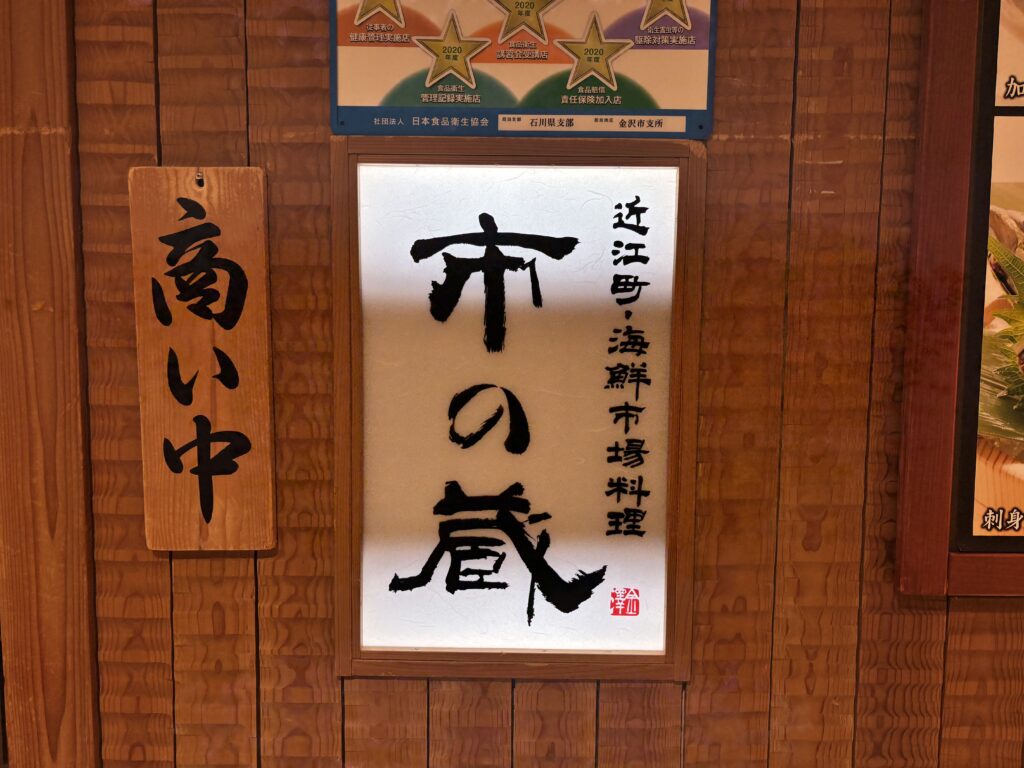 2020
年度
2020
年度
2020
年度
従事者の
健康管理実施店
食品衛生
講習会受講店
衛生害虫等の
駆除対策実施店
食品衛生
管理記録実施店
食品賠償
責任保険加入店
社団法人 日本食品衛生協会
石川県支部
金沢市支所
商い中
近江町・海鮮市場料理
市の蔵
金澤
加
刺身